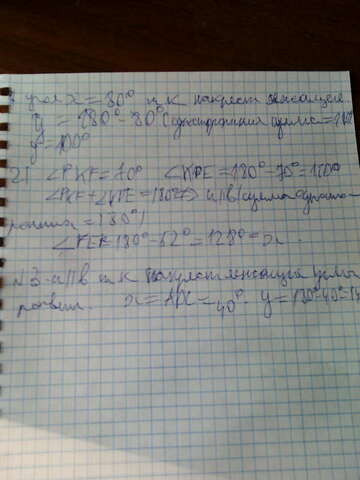 угол x = 80° т.к накрест лежащие
y = 180° - 80° (односторонних
y = 100°
2) ∠PKF = 70° ∠KPE = 180° - 70° = 110°
∠PKF + ∠KPE = 180° => a||b (сумма односто
ронних = 180°)
180° - 52° = 128° = x
№3 a||b т к накрест лежащие углы
равны. x = = 40°. y = 180° - 40° =